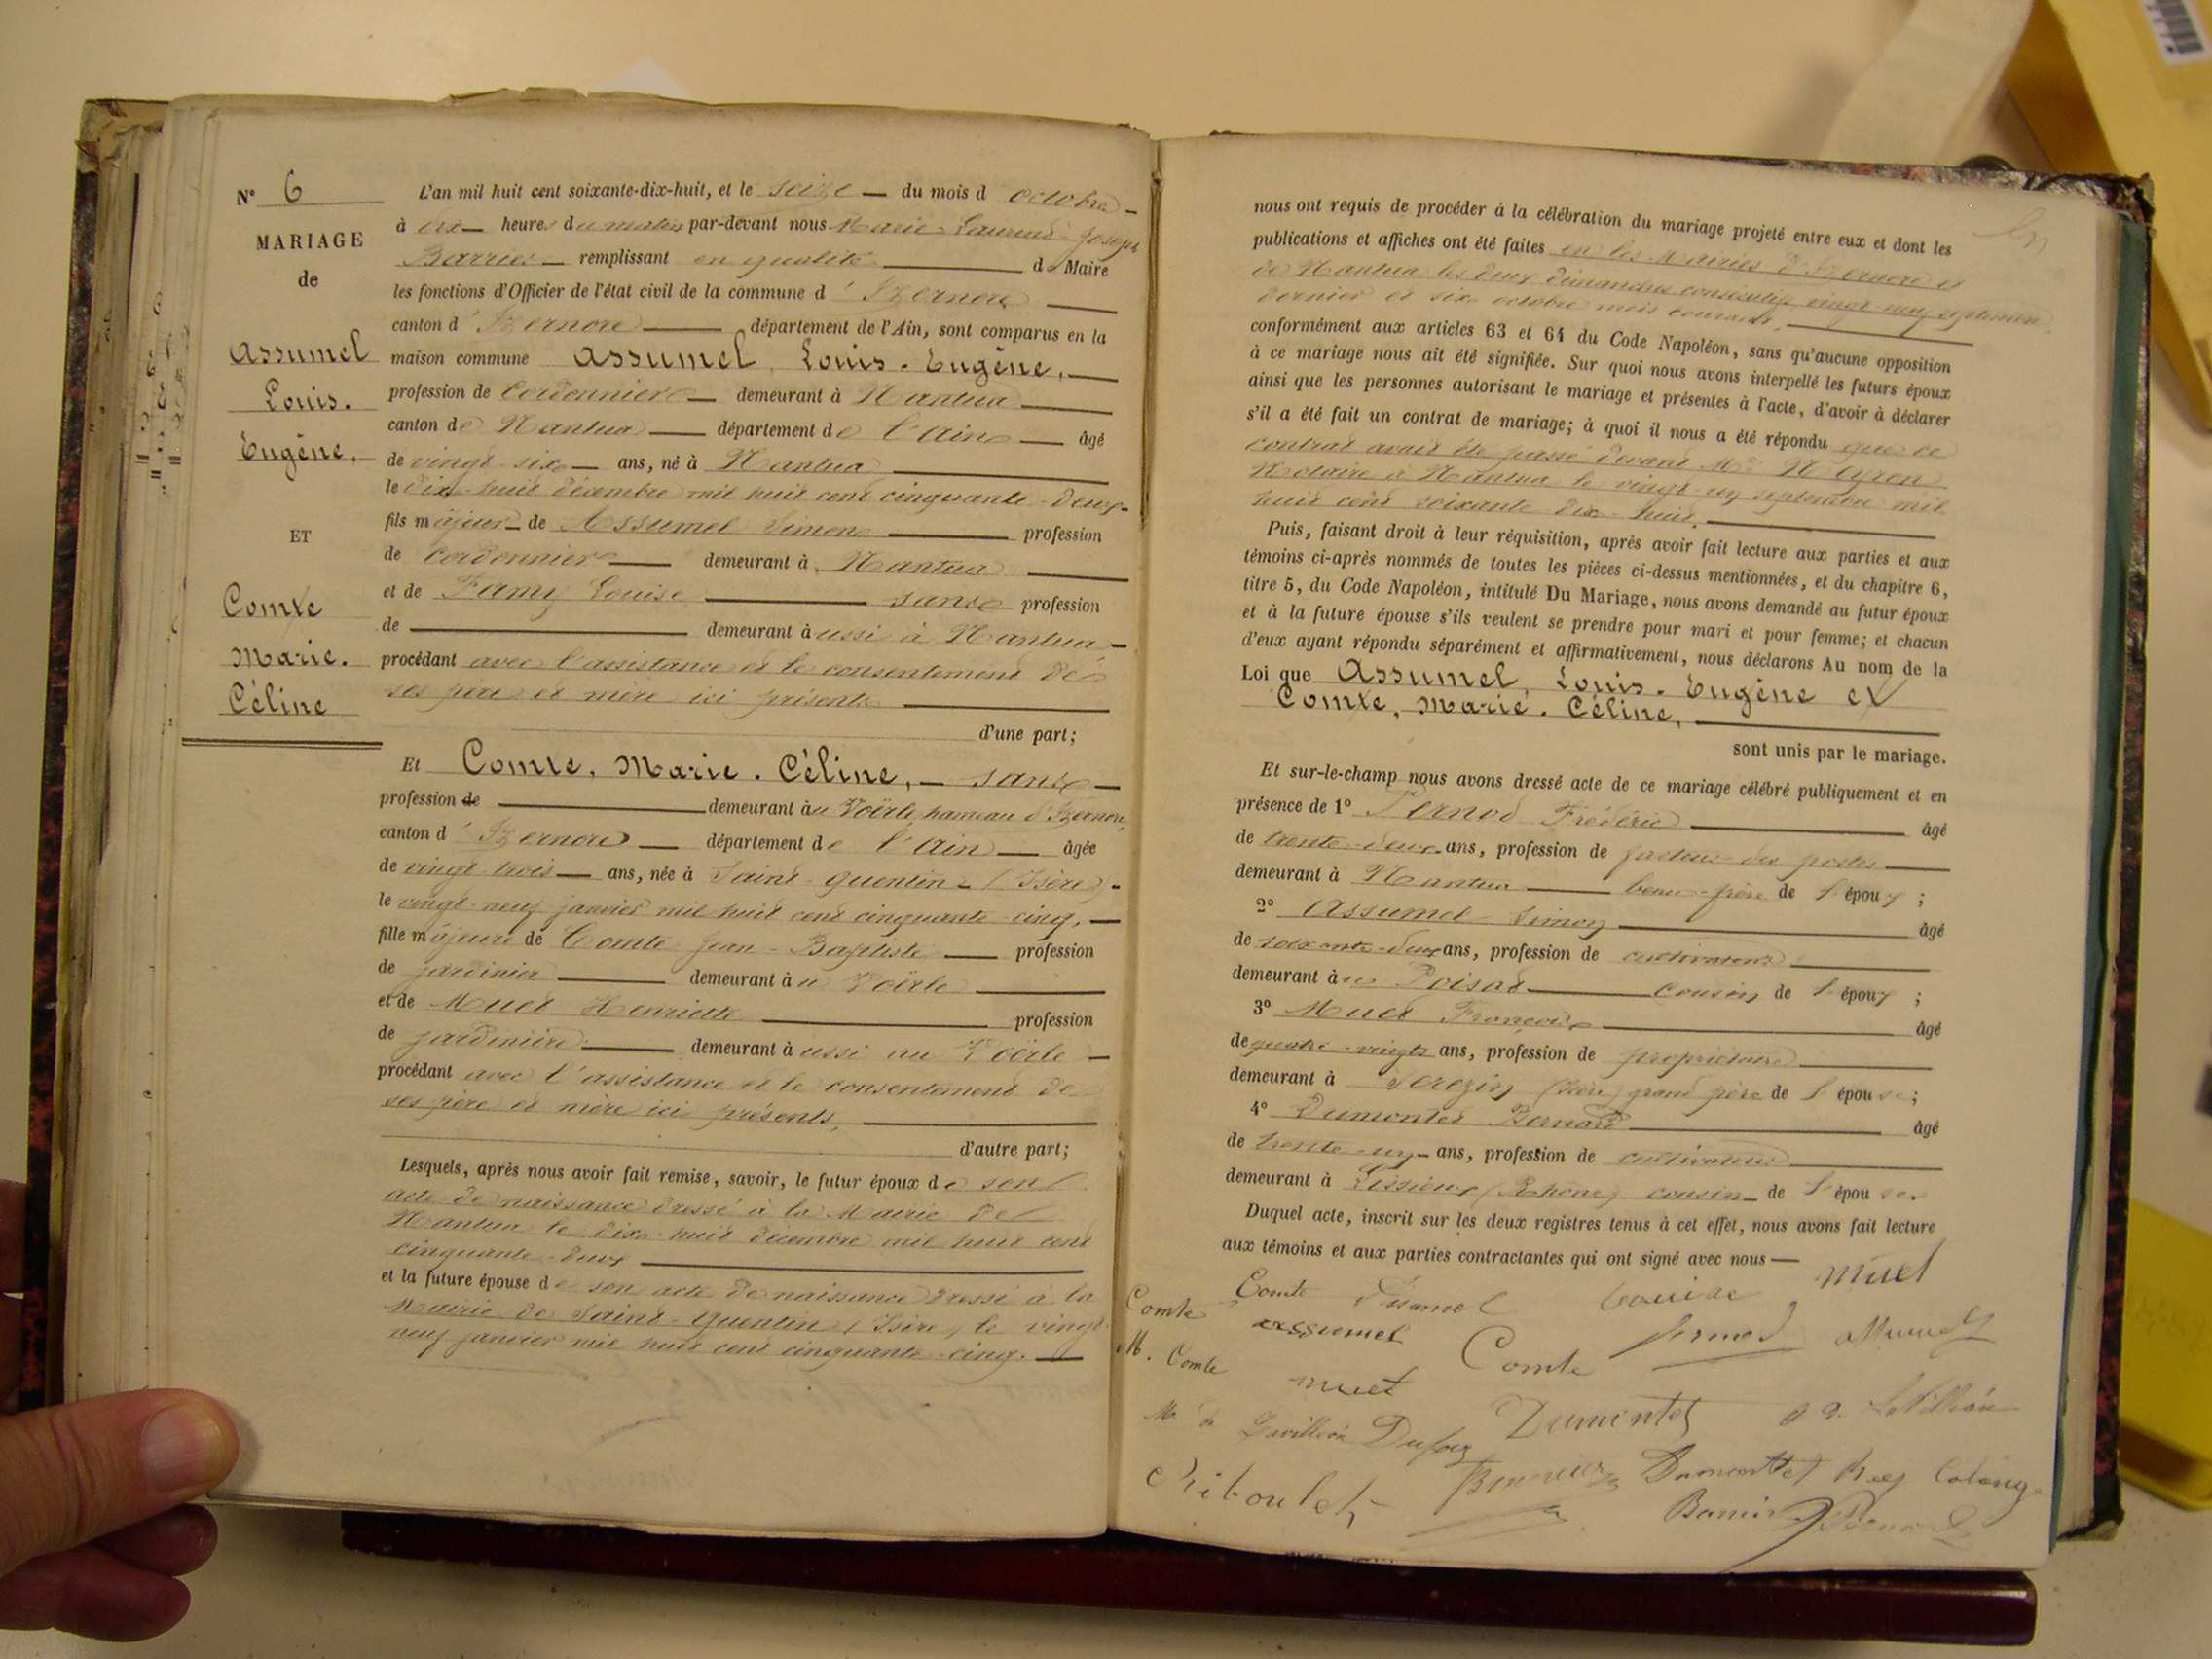 N° 6
MARIAGE
de
Assumel
Louis.
Eugène.
ET
Comte
Marie.
Céline
L'an mil huit cent soixante-dix-huit, et le seize du mois d'octobre
à dix heures du matin par-devant nous Marie-Laurent-Joseph
remplissant en qualité de Maire
les fonctions d'Officier de l'état civil de la commune d'Izernore
canton d'Izernore département de l'Ain, sont comparus en la
maison commune Assumel, Louis. Eugène,
profession de Cordonnier demeurant à Nantua
canton de Nantua département de l'Ain âgé
de vingt-six ans, né à Nantua
le dix-huit décembre mil huit cent cinquante-deux
fils majeur de Assumel Simon profession
de cordonnier demeurant à Nantua
et de Famy Louise sans profession
de demeurant aussi à Nantua
procédant avec l'assistance et le consentement de
ses père et mère ici présents
d'une part;
Et Comte, Marie. Céline, sans
profession de demeurant au Voërle, hameau d'Izernore,
canton d'Izernore département de l'Ain âgée
de vingt-trois ans, née à Saint-Quentin (Isère)
le vingt-neuf janvier mil huit cent cinquante-cinq,
fille majeure de Comte Jean-Baptiste profession
de jardinier demeurant au Voërle
et de Muet Henriette profession
de jardinière demeurant aussi au Voërle
procédant avec l'assistance et le consentement de
ses père et mère ici présents,
d'autre part;
Lesquels, après nous avoir fait remise, savoir, le futur époux de son
acte de naissance dressé à la Mairie de
Nantua le dix-huit décembre mil huit cent
cinquante-deux
et la future épouse de son acte de naissance dressé à la
Mairie de Saint-Quentin (Isère) le vingt-
neuf janvier mil huit cent cinquante-cinq.
nous ont requis de procéder à la célébration du mariage projeté entre eux et dont les
publications et affiches ont été faites en les Mairies d'Izernore et
de Nantua les deux dimanches consécutifs vingt-neuf septembre
dernier et six octobre mois courant,
conformément aux articles 63 et 64 du Code Napoléon, sans qu'aucune opposition
à ce mariage nous ait été signifiée. Sur quoi nous avons interpellé les futurs époux
ainsi que les personnes autorisant le mariage et présentes à l'acte, d'avoir à déclarer
s'il a été fait un contrat de mariage; à quoi il nous a été répondu que ce
contrat avait été passé devant Me
Notaire à Nantua le vingt-un septembre mil
huit cent soixante-dix-huit.
Puis, faisant droit à leur réquisition, après avoir fait lecture aux parties et aux
témoins ci-après nommés de toutes les pièces ci-dessus mentionnées, et du chapitre 6,
titre 5, du Code Napoléon, intitulé Du Mariage, nous avons demandé au futur époux
et à la future épouse s'ils veulent se prendre pour mari et pour femme; et chacun
d'eux ayant répondu séparément et affirmativement, nous déclarons Au nom de la
Loi que Assumel, Louis. Eugène et
Comte, Marie. Céline,
sont unis par le mariage.
Et sur-le-champ nous avons dressé acte de ce mariage célébré publiquement et en
présence de 1° Pernod Frédéric âgé
de trente-deux ans, profession de facteur des postes
demeurant à Nantua beau-frère de l'époux;
2° Assumel Simon âgé
de soixante-deux ans, profession de cultivateur
demeurant au Poisat cousin de l'époux;
3° Muet François âgé
de quatre-vingts ans, profession de propriétaire
demeurant à Serezin (Isère) grand père de l'épouse;
4° Dumontet Bernard âgé
de trente-un ans, profession de cultivateur
demeurant à Lissieux (Rhône) cousin de l'épouse.
Duquel acte, inscrit sur les deux registres tenus à cet effet, nous avons fait lecture
aux témoins et aux parties contractantes qui ont signé avec nous
Comte Comte Louise Muet
assumel Comte pernod
M. Comte
muet Dumontet
Dufour
Riboulet Dumontet